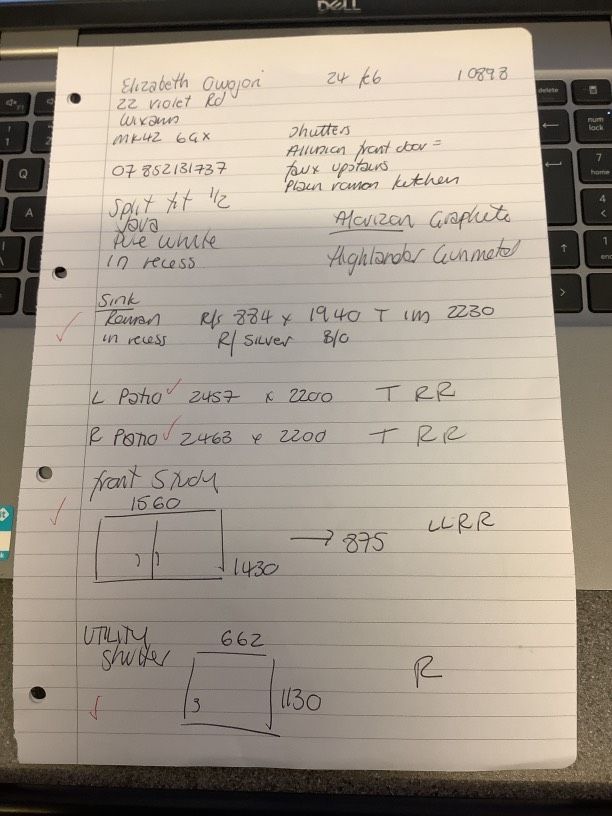 DELL
Elizabeth Owojori 24 Feb 10898
22 Violet Rd
Wixams
MK42 6GX
07852131737
Shutters
Allusion front door =
faux upstairs
Plain roman kitchen
Split tilt 1/2
Java
Pure white
in recess
Alorizon Graphite
Highlander Gunmetal
Sink
Roman R/s 884 x 1940 T 1m 2230
in recess R/ Silver B/O
L Patio 2457 x 2200 T RR
R Patio 2463 x 2200 T RR
front Study
1560
1430
→ 875
LLRR
UTILITY
Shutter
662
1130
R
delete
num
lock
7
home
4
1
end
Q
A